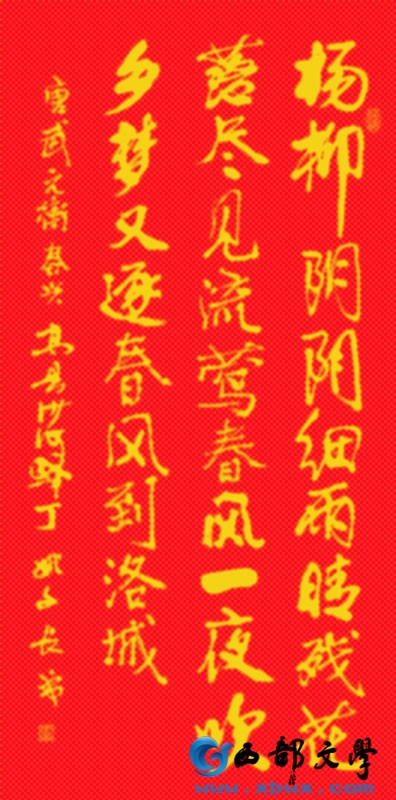 杨柳阴阴细雨晴残花
落尽见流莺春风一夜吹
乡梦又逐春风到洛城
唐武元衡春兴
西部文学
www.xbwx.com